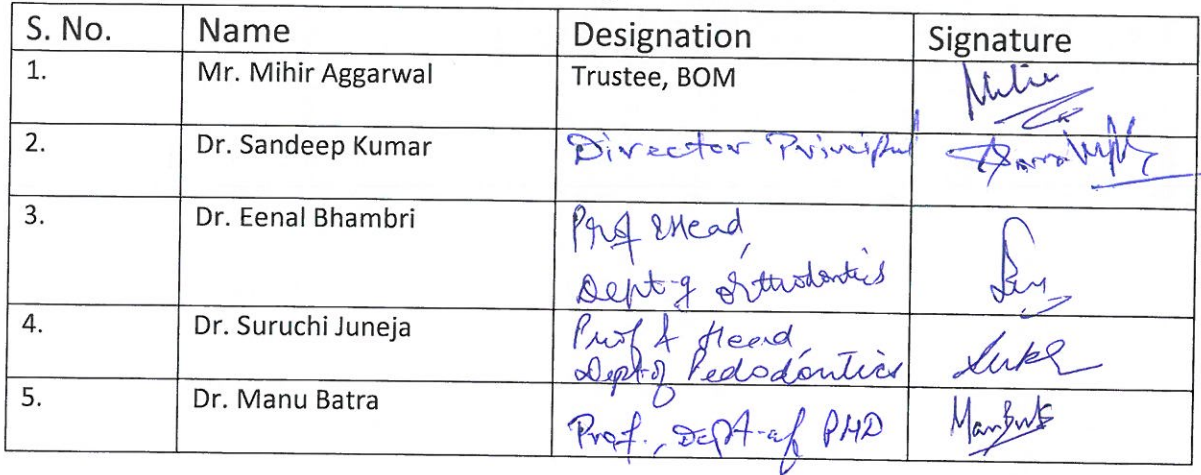 S. No. Name Designation Signature
1. Mr. Mihir Aggarwal Trustee, BOM
2. Dr. Sandeep Kumar Director Principal
3. Dr. Eenal Bhambri Prof & Head,
Dept of Orthodontics
4. Dr. Suruchi Juneja Prof & Head,
Dept of Pedodontics
5. Dr. Manu Batra Prof., Dept of PHD